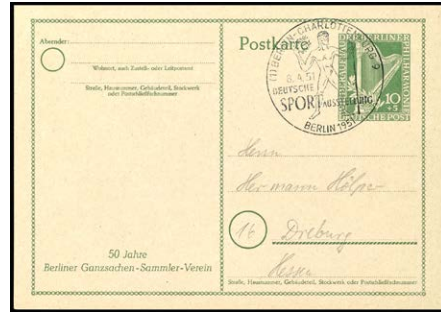 Absender:
Wohnort, auch Zustell- oder Leitpostamt
Straße, Hausnummer, Gebäudeteil, Stockwerk
oder Postschließfachnummer
50 Jahre
Berliner Ganzsachen-Sammler-Verein
Postkarte
(1) BERLIN-CHARLOTTENBURG 9
8.4.51
DEUTSCHE
SPORT AUSSTELLUNG
BERLIN 1951
BERLINER
PHILHARMONIE
10
+5
DEUTSCHE POST
Herrn
Hermann
16 Dreiburg
Hessen
Straße, Hausnummer, Gebäudeteil, Stockwerk oder Postschließfachnummer